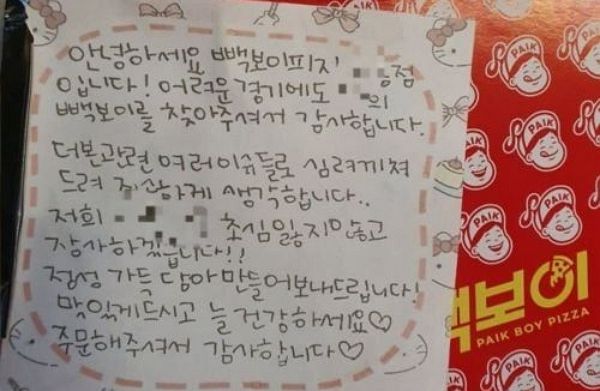 안녕하세요 빽보이피자
입니다! 어려운 경기에도 점의
빽보이를 찾아주셔서 감사합니다.
더본관련 여러이슈들로 심려끼쳐
드려 죄송하게 생각합니다..
저희 초심잃지않고
장사하겠습니다!!
정성 가득 담아 만들어보내드립니다!
맛있게드시고 늘 건강하세요♡
주문해주셔서 감사합니다♡
PAIK
PAIK
PAIK
PAIK
PAIK
백보이
PAIK BOY PIZZA
PAIK
PAIK